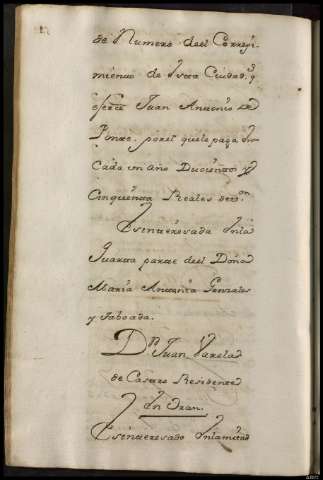 de Numero deel Corregi-
miento de Esta Ciudad, q.
eferce Juan Antonio de
Ponte. porel quele paga En
Cada un año Duciento y
Cinquenta Reales de v.on
Esinteresada Enla
Quarta parte deel Doña
Maria Antonia Gonzales
y Taboada.
Dn. Juan Varelad
de Castro Residente
En Oran.
Esinteresado Enlamitad